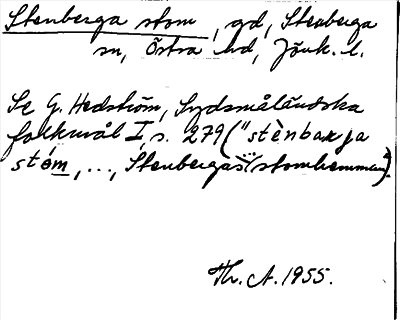 Stenberga stom, gd, Stenberga
sn, Östra hd, Jönk. l.
Se G. Hedström, Sydsmåländska
folkmål I, s. 279 ("stènbarja
stóm, ..., Stenbergas ... stomhemman").
Th. A. 1955.